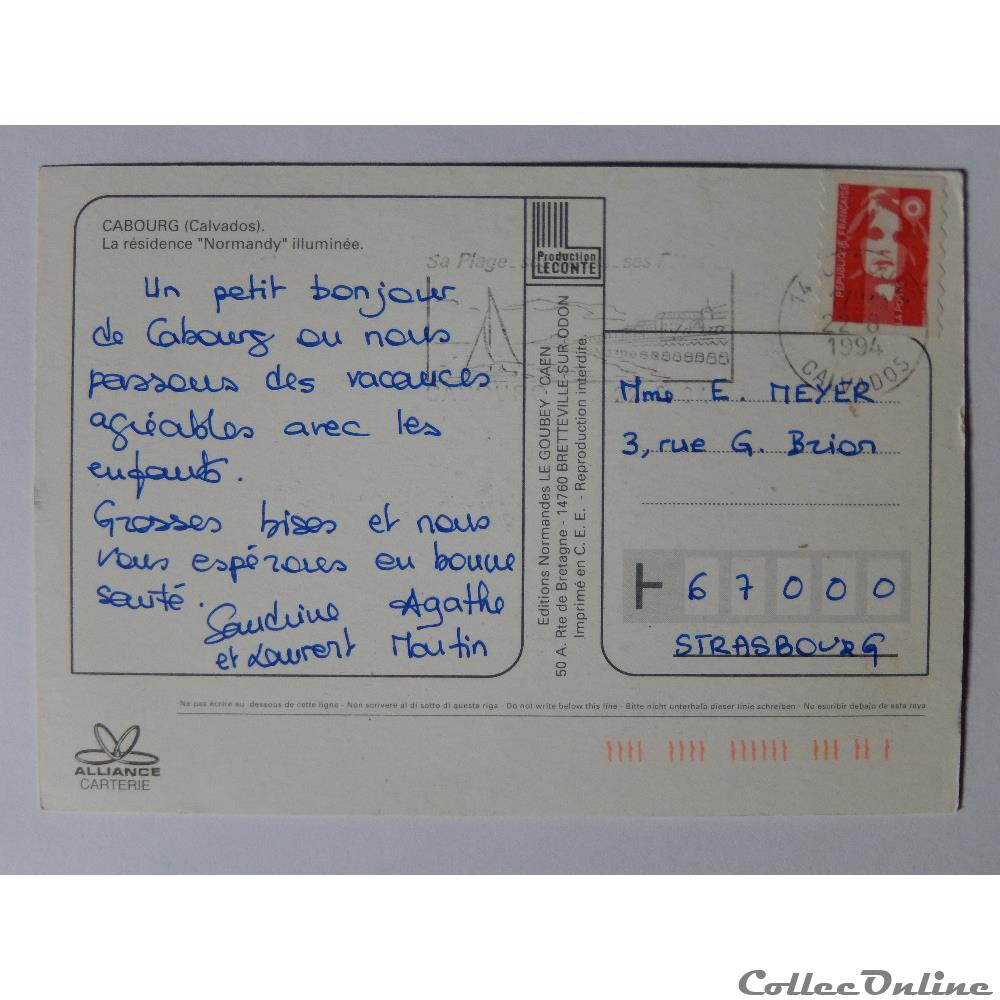 CABOURG (Calvados).
La résidence "Normandy" illuminée.
Un petit bonjour
de Cabourg ou nous
passons des vacances
agréables avec les
enfants.
Grosses bises et nous
vous espérons en bonne
santé.
Sandrine Agathe
et Laurent Moutin
Production
LECONTE
Editions Normandes LE GOUBEY - CAEN
50 A. Rte de Bretagne - 14760 BRETTEVILLE-SUR-ODON
Imprimé en C. E. E. - Reproduction interdite.
Sa Plage ses
REPUBLIQUE FRANÇAISE
LA POSTE
14
22-8
1994
CALVADOS
Mme E. MEYER
3, rue G. Brion
67000
STRASBOURG
Ne pas écrire au dessous de cette ligne - Non scrivere al di sotto di questa riga - Do not write below this line - Bitte nicht unterhalb dieser linie schreiben - No escribir debajo de esta raya
ALLIANCE
CARTERIE
CollecOnline